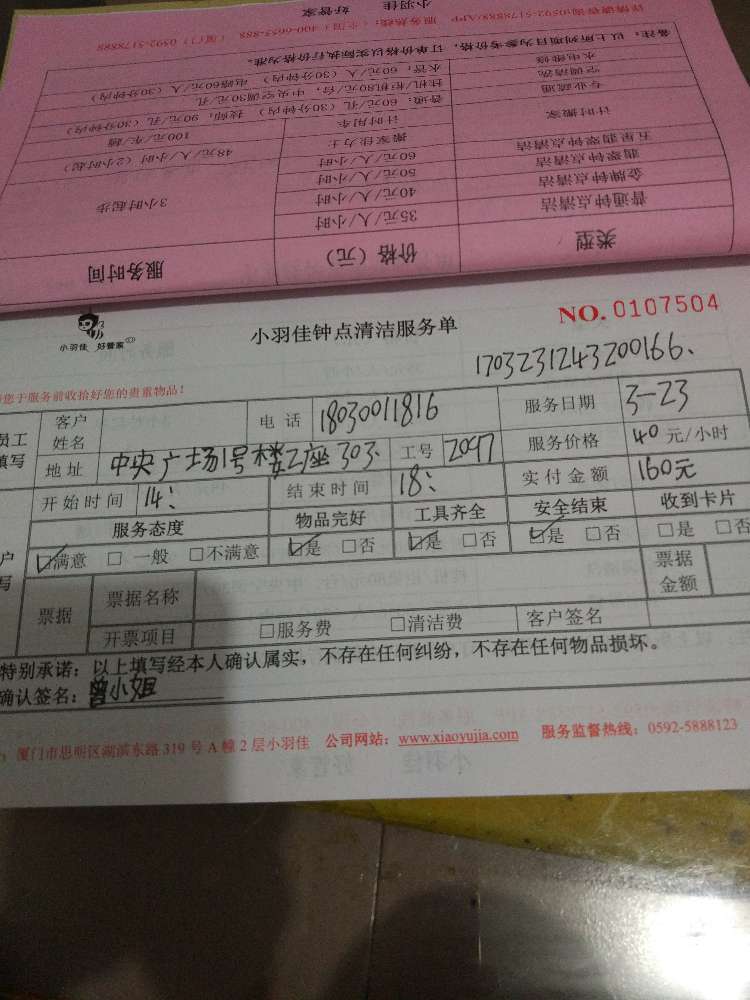 小羽佳 好管家
详情请咨询:0592-5178888/APP 服务热线:(全国)400-6655-888 (厦门)0592-5178888
备注:以上所列项目为参考价格,订单价格以实际执行价格为准。
水电维修 水管,60元/人(30分钟内) 电路60元/人(30分钟内)
空调清洗 挂机/柜机80元/台,中央空调30元/孔
专业疏通 普通:60元/孔(30分钟内) 技师,90元/孔(30分钟内)
计时搬家 计时用车 100元/车/趟
搬家佳力士 48元/人/小时(2小时起)
五星翡翠钟点清洁 60元/人/小时
翡翠钟点清洁 50元/人/小时
金牌钟点清洁 40元/人/小时 3小时起步
普通钟点清洁 35元/人/小时
类型 价格(元) 服务时间
小羽佳 好管家
小羽佳钟点清洁服务单
NO. 0107504
1703231243200166.
您于服务前收拾好您的贵重物品!
员工填写 客户姓名 电话 18030011816 服务日期 3-23
地址 中央广场1号楼乙座303. 工号 2047 服务价格 40元/小时
开始时间 14: 结束时间 18: 实付金额 160元
服务态度 物品完好 工具齐全 安全结束 收到卡片
户写 ☑满意 □一般 □不满意 ☑是 □否 ☑是 □否 ☑是 □否 □是 □否
票据 票据名称 票据金额
开票项目 □服务费 □清洁费 客户签名
特别承诺:以上填写经本人确认属实,不存在任何纠纷,不存在任何物品损坏。
确认签名:曾小姐
厦门市思明区湖滨东路319号A幢2层小羽佳 公司网站:www.xiaoyujia.com 服务监督热线:0592-5888123